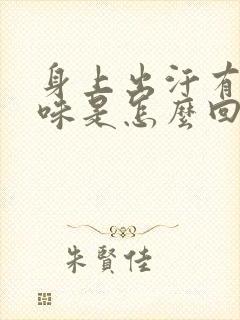 身上出汗有
味是怎麼回
朱賢佳